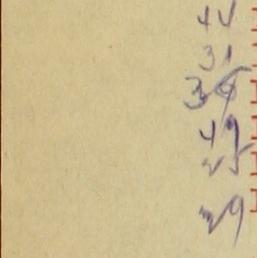 44
31
36
49
25
29